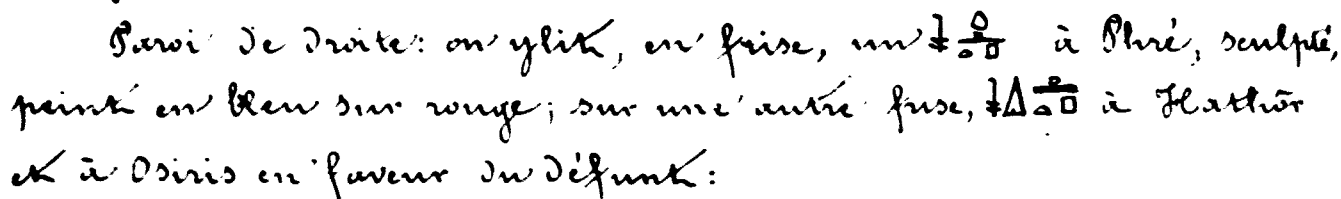 Paroi de droite: on y lit, en frise, un 𓇓𓏏𓊵𓊪 à Phré, sculpté,
peint en bleu sur rouge; sur une autre frise, 𓇓𓏙𓊵𓏏𓊪 à Hathôr
et à Osiris en faveur du défunt: